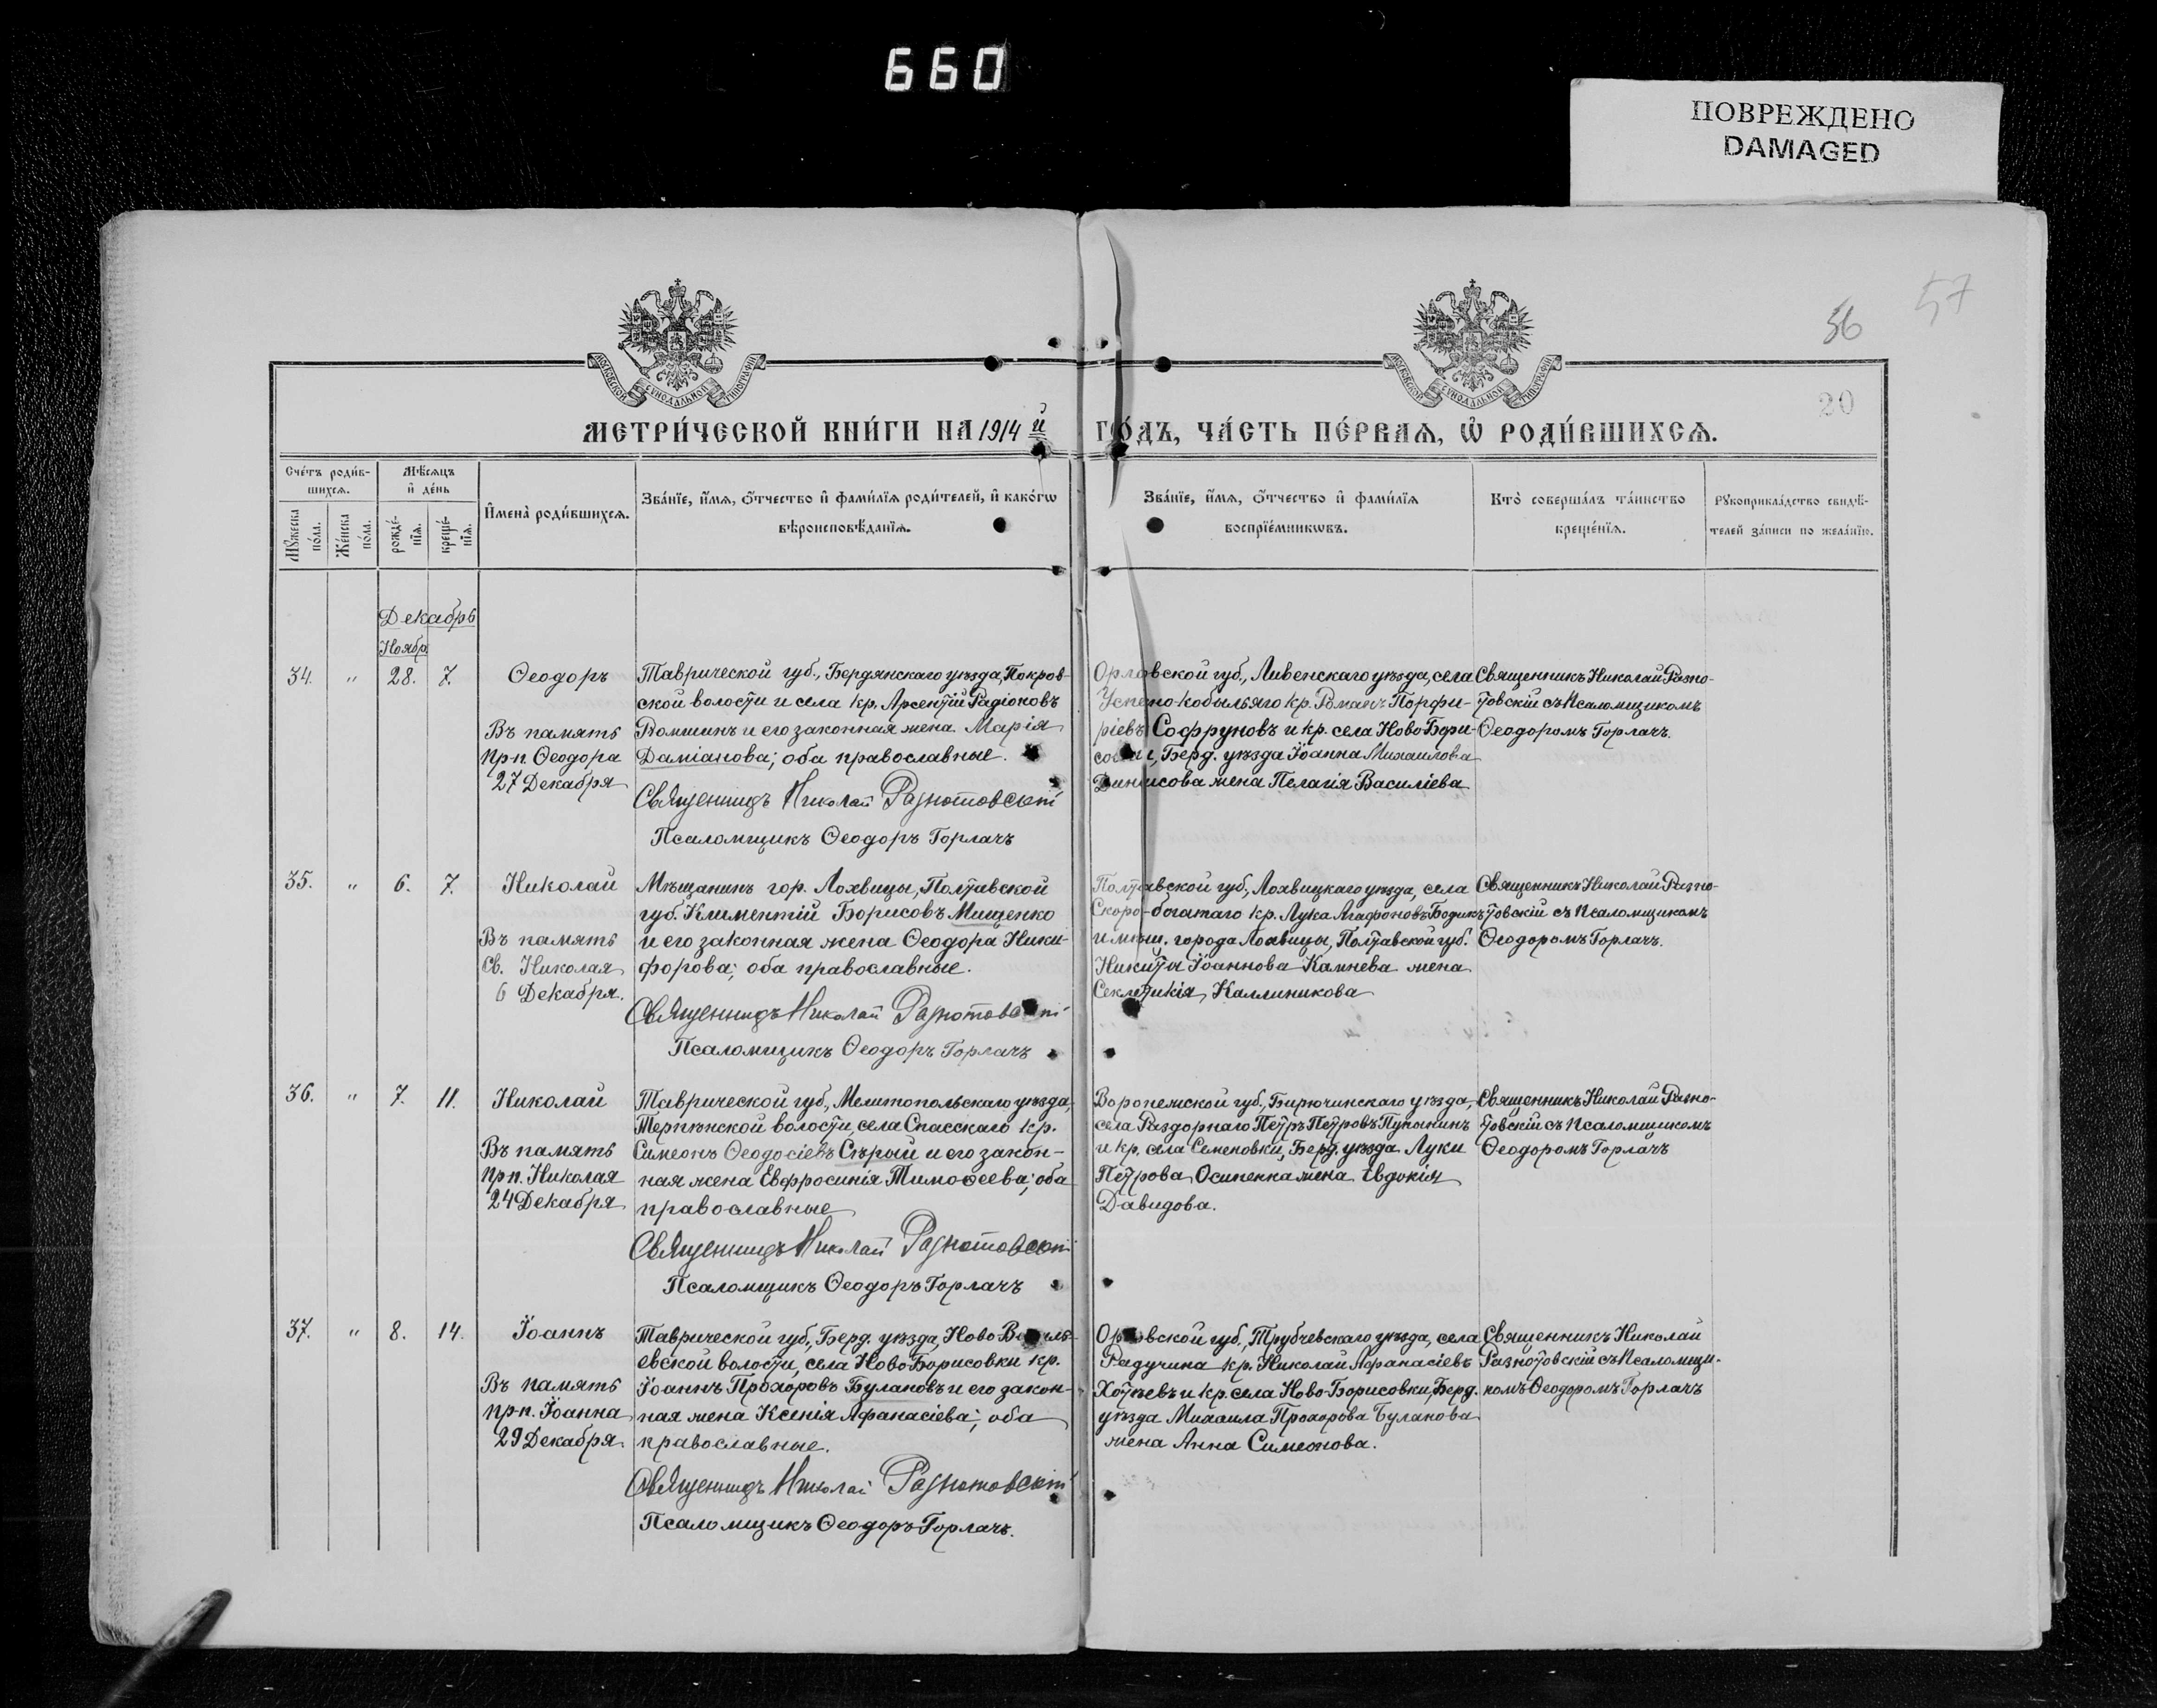 660
ПОВРЕЖДЕНО
DAMAGED
57
56
20
МОСКОВСКОЙ СѴНОДАЛЬНОЙ ТИПОГРАФІИ
МОСКОВСКОЙ СѴНОДАЛЬНОЙ ТИПОГРАФІИ
МЕТРИ́ЧЕСКОЙ КНИ́ГИ НА 1914 й
ГО́ДЪ, ЧА́СТЬ ПЕ́РВАѦ, Ѡ҆ РОДИ́ВШИХСѦ.
Сче́тъ роди́в-
шихсѧ.
Мꙋ́жеска по́ла.
Же́нска по́ла.
Мѣ́сѧцъ
и҆ де́нь
рожде́-нїѧ.
креще́-нїѧ.
И҆мена̀ роди́вшихсѧ.
Зва́нїе, и҆́мѧ, ѻ҆́тчество и҆ фами́лїѧ роди́телей, и҆ како́гѡ
вѣроисповѣ́данїѧ.
Зва́нїе, и҆́мѧ, ѻ҆́тчество и҆ фами́лїѧ
воспрїе́мникѡвъ.
Кто̀ соверша́лъ та́инство
креще́нїѧ.
Рꙋкоприкла́дство свидѣ́-
телей за́писи по жела́нїю.
Декабрь
Ноябр.
34.
"
28.
7.
Ѳеодоръ
Въ память
прп. Ѳеодора
27 Декабря
Таврической губ., Бердянскаго уѣзда, Покров-
ской волости и села кр. Арсентій Радіоновъ
Ромшинъ и его законная жена Марія
Даміанова; оба православные.
Священникъ Николай Разнотовскій
Псаломщикъ Ѳеодоръ Горлачъ
Орловской губ., Ливенскаго уѣзда, села
кобыльяго кр. Романъ Порфи-
ріевъ Софруновъ и кр. села Ново Бори-
совки, Берд. уѣзда Іоанна Михаилова
Динисова жена Пелагія Василіева
Священникъ Николай Разно-
товскій съ Псаломщикомъ
Ѳеодоромъ Горлачъ.
35.
"
6.
7.
Николай
Въ память
Св. Николая
6 Декабря.
Мѣщанинъ гор. Лохвицы, Полтавской
губ. Климентій Борисовъ Мищенко
и его законная жена Ѳеодора Ники-
форова; оба православные.
Священникъ Николай Разнотовскій
Псаломщикъ Ѳеодоръ Горлачъ
Полтавской губ., Лохвицкаго уѣзда, села
Скоро-богатаго кр. Лука Агафоновъ Бодикъ
и мѣщ. города Лохвицы, Полтавской губ.
Никиты Іоаннова Камнева жена
Секлетикія Каллиникова
Священникъ Николай Разно-
товскій съ Псаломщикомъ
Ѳеодоромъ Горлачъ.
36.
"
7.
11.
Николай
Въ память
прп. Николая
24 Декабря
Таврической губ., Мелитопольскаго уѣзда,
Терпѣнской волости, села Спасскаго кр.
Симеонъ Ѳеодосіевъ Сѣрый и его закон-
ная жена Евфросинія Тимоѳеева; оба
православные
Священникъ Николай Разнотовскій
Псаломщикъ Ѳеодоръ Горлачъ
Воронежской губ., Бирючинскаго уѣзда,
села Раздорнаго Петръ Петровъ Пупынинъ
и кр. села Семеновки, Берд. уѣзда Луки
Петрова Осипенка жена Евдокія
Давидова.
Священникъ Николай Разно-
товскій съ Псаломщикомъ
Ѳеодоромъ Горлачъ
37.
"
8.
14.
Іоаннъ
Въ память
прп. Іоанна
29 Декабря.
Таврической губ., Берд. уѣзда, Ново Василь-
евской волости, села Ново Борисовки кр.
Іоаннъ Прохоровъ Булановъ и его закон-
ная жена Ксенія Афанасіева; оба
православные.
Священникъ Николай Разнотовскій
Псаломщикъ Ѳеодоръ Горлачъ.
Орловской губ., Трубчевскаго уѣзда, села
Радучина кр. Николай Афанасіевъ
Хотѣевъ и кр. села Ново-Борисовки, Берд.
уѣзда Михаила Прохорова Буланова
жена Анна Симеонова.
Священникъ Николай
Разнотовскій съ Псаломщи-
комъ Ѳеодоромъ Горлачъ